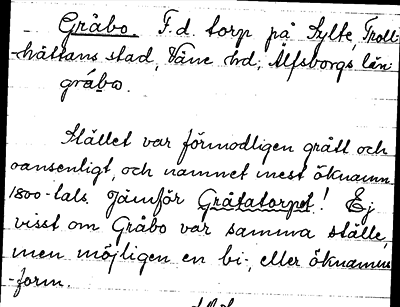 Gråbo. F.d. torp på Sylte, Troll-
hättans stad, Väne hd, Älfsborgs län.
gråbo.
Stället var förmodligen grått och
oansenligt, och namnet mest öknamn.
1800-tals. Jämför Gråtatorpet! Ej
visst om Gråbo var samma ställe,
men möjligen en bi-, eller öknamns
-form.